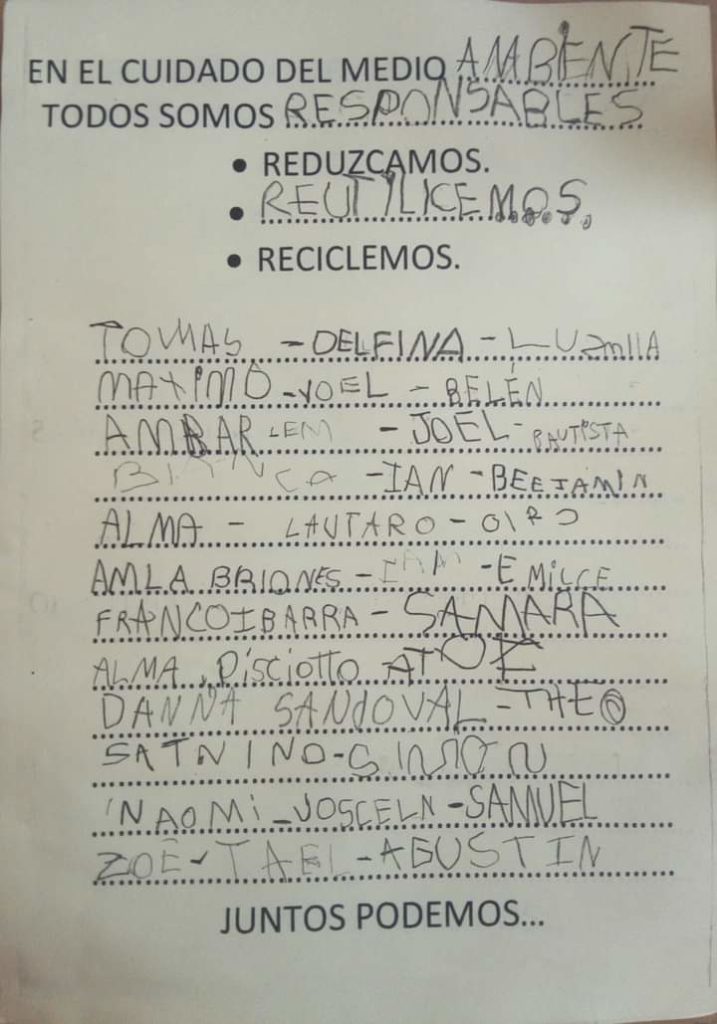 EN EL CUIDADO DEL MEDIO AMBIENTE
TODOS SOMOS RESPONSABLES
• REDUZCAMOS.
• REUTILICEMOS,
• RECICLEMOS.
TOMAS - DELFINA - LUzmIlA
MAXIMO - YOEL - BELÉN
AMBAR LEM - JOEL - BAUTISTA
BIANCA - IAN - BEEJAMIN
ALMA - LAUTARO - CIRO
AMLA BRIONES - - EMiLCE
FRANCO IBARRA - SAMARA
ALMA Pisciotto
DANNA SANdOVAL - THEO
SATNINO - SIMON
NAOMi - JOSCELN - SAMUEL
ZOE - TAEL - AGUSTIN
JUNTOS PODEMOS...